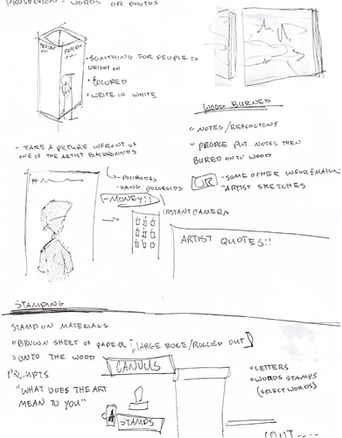 PROJECTION - WORDS OR PHOTOS
• SOMTHING FOR PEOPLE TO
WRIGHT ON
• COLORED
• WRITE IN WHITE
WOOD BURNED
• NOTES/REFLECTIONS
• PEOPLE PUT NOTES THEN
BURED ONTO WOOD
OR - SOME OTHER INFORMATION
- ARTIST SKETCHES
- TAKE A PICTURE INFRONT OF
ONE OF THE ARTIST BACKROUNDS
- POLORODES
- HANG POLOROIDS
- MONEY!!
INSTANT CAMERA
ARTIST QUOTES!!
STAMPING
STAMP ON MATERIALS
• BROWN SHEET OF PAPER [LARGE ROLE/ROLLED OUT]
• ONTO THE WOOD
CANVUS
PROMPTS
"WHAT DOES THE ART
MEAN TO YOU"
• LETTERS
• WORDS STAMPS
(SELECT WORDS)
A
STAMPS